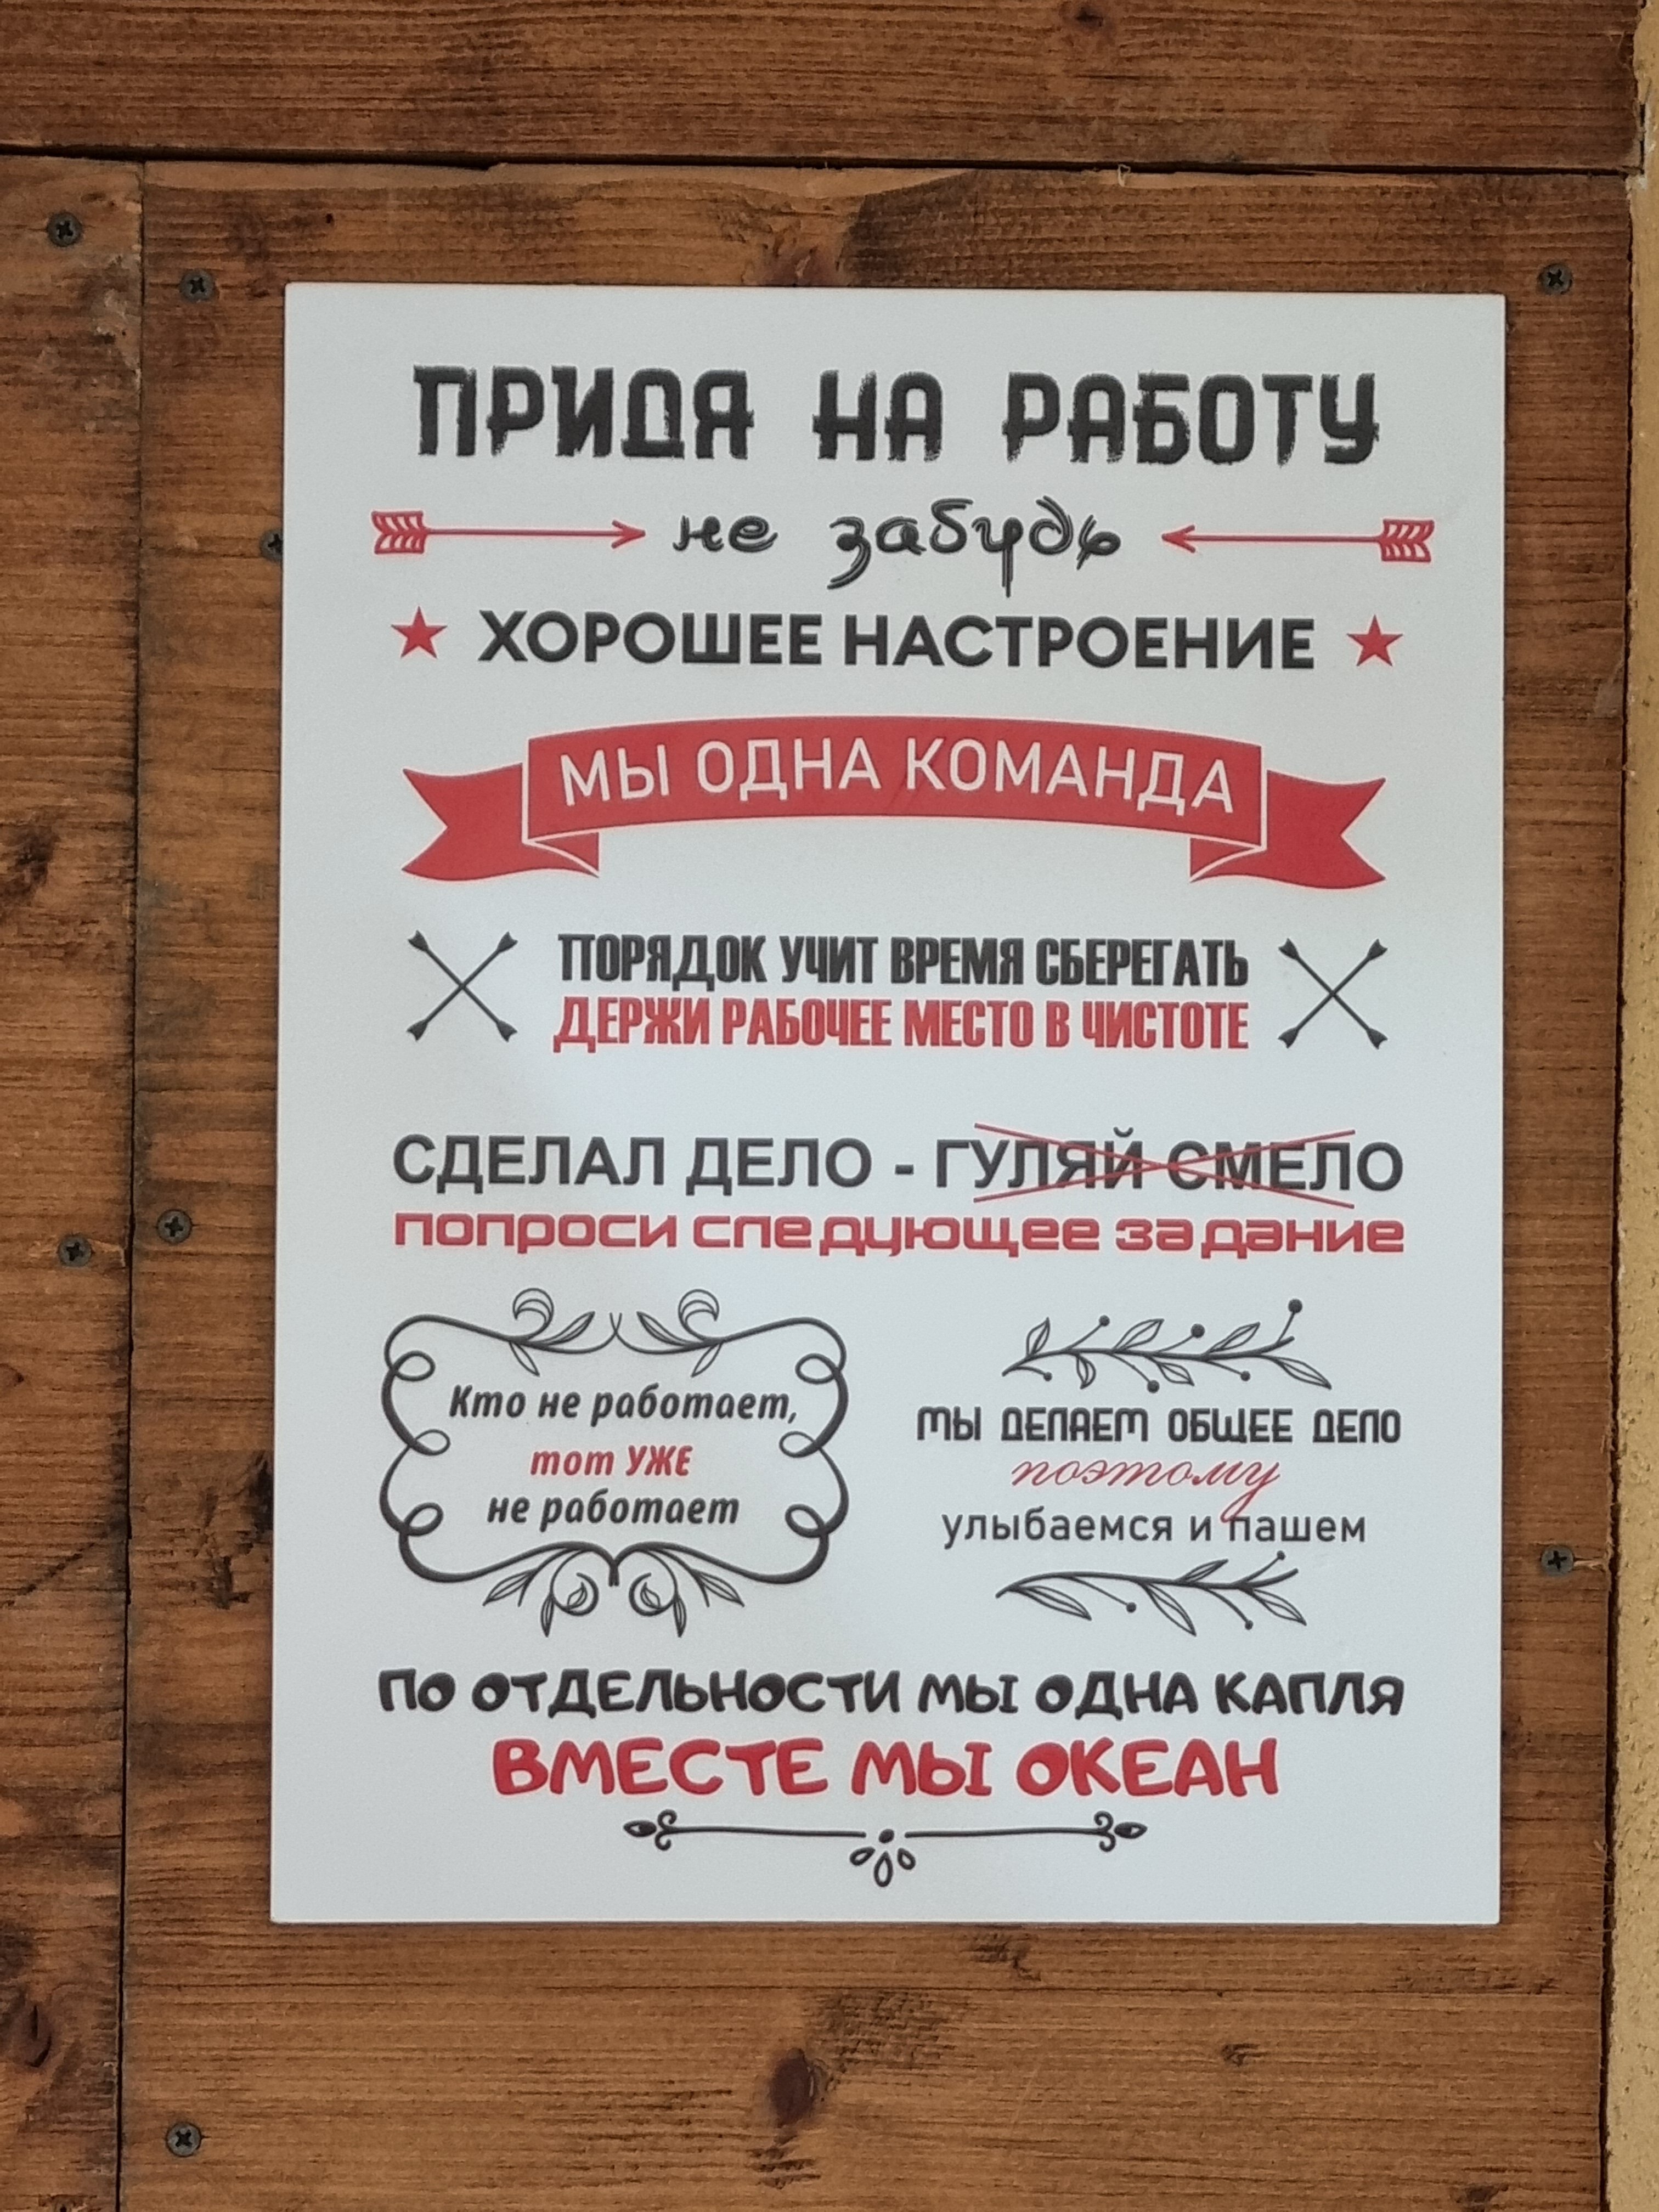 ПРИДЯ НА РАБОТУ
не забудь
ХОРОШЕЕ НАСТРОЕНИЕ
МЫ ОДНА КОМАНДА
ПОРЯДОК УЧИТ ВРЕМЯ СБЕРЕГАТЬ
ДЕРЖИ РАБОЧЕЕ МЕСТО В ЧИСТОТЕ
СДЕЛАЛ ДЕЛО - ГУЛЯЙ СМЕЛО
попроси следующее задание
Кто не работает,
тот УЖЕ
не работает
МЫ ДЕЛАЕМ ОБЩЕЕ ДЕЛО
поэтому
улыбаемся и пашем
ПО ОТДЕЛЬНОСТИ МЫ ОДНА КАПЛЯ
ВМЕСТЕ МЫ ОКЕАН